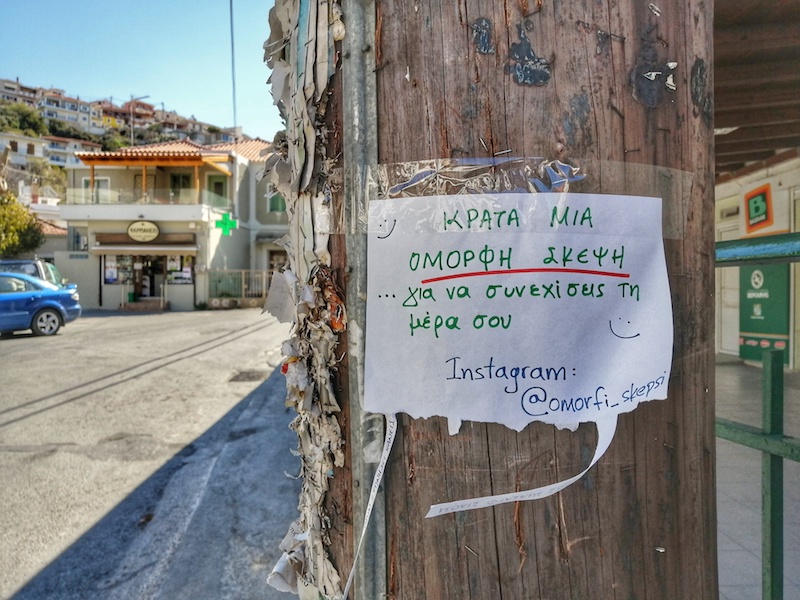 ΚΡΑΤΑ ΜΙΑ
ΟΜΟΡΦΗ ΣΚΕΨΗ
... για να συνεχίσεις τη
μέρα σου
Instagram:
@omorfi_skepsi